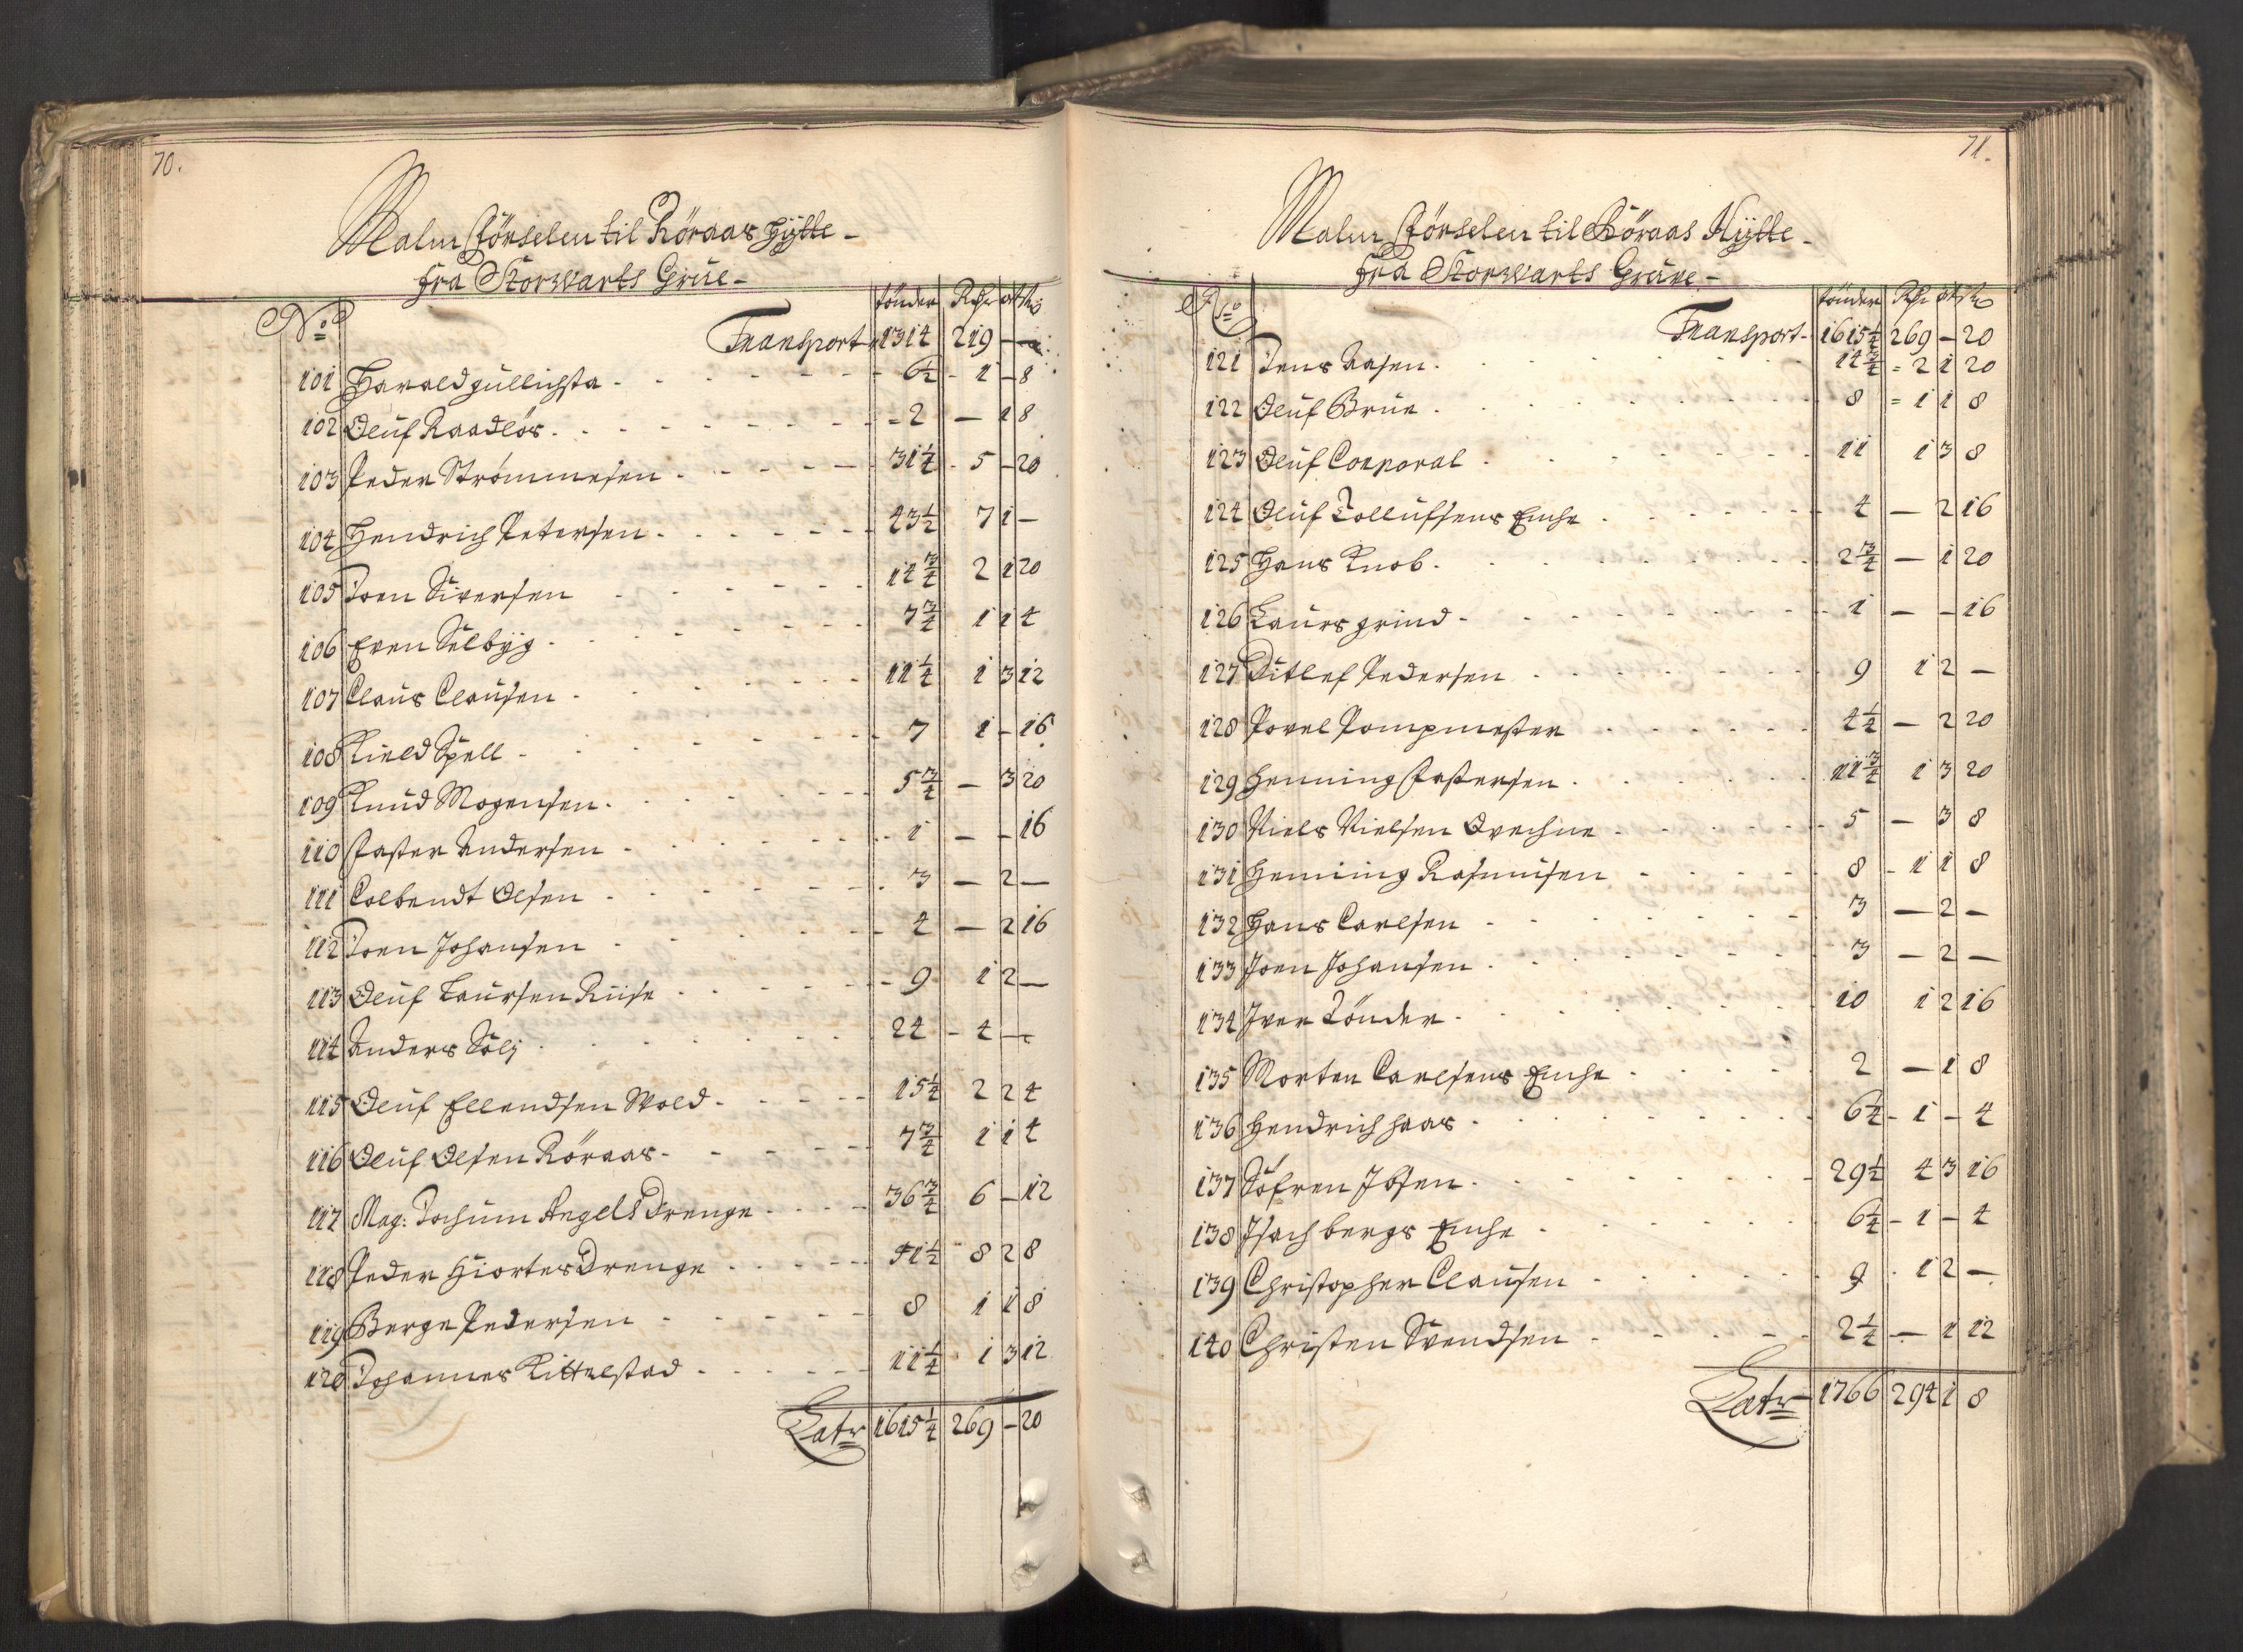 70.
Malm Förselen til Röraas Hytte
fra Storwarts Grue
No tönder Rdr ort s
Transport 1314 219 — —
101 Harald gullichsta 6 1/2 1 — 8
102 Oluf Raadlös 2 — 1 8
103 Peder Strömmesen 31 1/4 5 — 20
104 Hendrich Petersen 43 1/2 7 1 —
105 Joen Siversen 14 3/4 2 1 20
106 Even Selbyg 7 3/4 1 1 4
107 Claus Clausen 11 1/4 1 3 12
108 Kield Spell 7 1 — 16
109 Knud Mogensen 5 3/4 — 3 20
110 Faster Andersen 1 — — 16
111 Colbendt Olsen 3 — 2 —
112 Joen Johansen 4 — 2 16
113 Oluf Laursen Ruise 9 1 2 —
114 Anders Sölj 24 4 —
115 Oluf Ellendsen Wold 15 1/4 2 2 4
116 Oluf Olsen Röraas 7 3/4 1 1 4
117 Mag: Jochum Angels Drenge 36 3/4 6 — 12
118 Peder Hiortes Drenge 51 1/2 8 2 8
119 Berge Pedersen 8 1 1 8
120 Johannes Kittelstad 11 1/4 1 3 12
Latr 1615 1/4 269 — 20
71.
Malm Förselen til Röraas Hytte
fra Storwarts Gruve
No tönder Rdr ort s
Transport 1615 1/4 269 — 20
121 Jens Aasen 14 3/4 2 1 20
122 Oluf Brun 8 1 1 8
123 Oluf Corporal 11 1 3 8
124 Oluf Tollufsens Enche 4 — 2 16
125 Hans Knob 2 3/4 — 1 20
126 Laurs grind 1 — — 16
127 Ditlef Pedersen 9 1 2 —
128 Povel Pompmester 4 1/4 — 2 20
129 Henning Fastersen 11 3/4 1 3 20
130 Niels Nielsen Qvechne 5 — 3 8
131 Henning Rasmusen 8 1 1 8
132 Hans Carlsen 3 — 2 —
133 Joen Johansen 3 — 2 —
134 Iver Tönder 10 1 2 16
135 Morten Carlsens Enche 2 — 1 8
136 Hendrich haas 6 1/4 1 — 4
137 Söfren Ibsen 29 1/2 4 3 16
138 Isach bergs Enche 6 1/4 1 — 4
139 Christopher Clausen 9 1 2 —
140 Christen Svendsen 2 1/4 — 1 12
Latr 1766 294 1 8